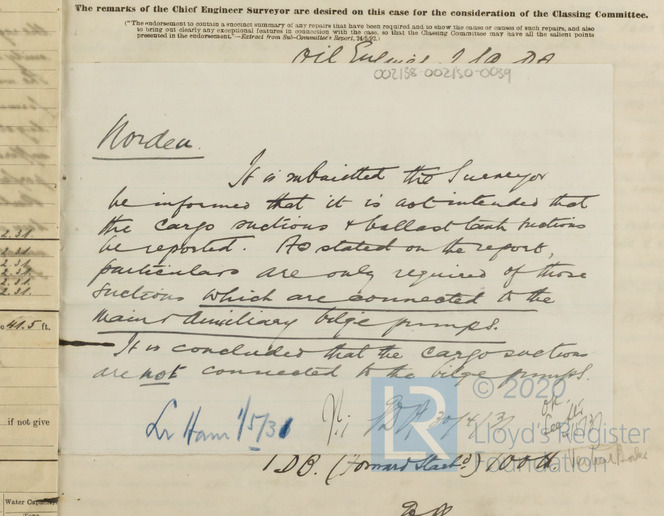 The remarks of the Chief Engineer Surveyor are desired on this case for the consideration of the Classing Committee.
("The endorsement to contain a succinct summary of any repairs that have been required and to show the cause or causes of such repairs, and also
to bring out clearly any exceptional features in connection with the case, so that the Classing Committee may have all the salient points
presented in the endorsement."—Extract from Sub-Committee's Report,
Oil Engines.
002138-002150-0039
Norden.
It is submitted the Surveyor
be informed that it is not intended that
the cargo suctions & ballast tank suctions
be reported. As stated on the report,
particulars are only required of those
suctions which are connected to the
main & auxiliary bilge pumps.
It is concluded that the cargo suctions
are not connected to the bilge pumps.
Lr Ham 1/5/31
30/4/31
© 2020
LR
Lloyd's Register
Foundation
1 DB. (Forward
2.31
2.31
2.31
2.31
2.31
41.5 ft.
if not give
Water Capacity